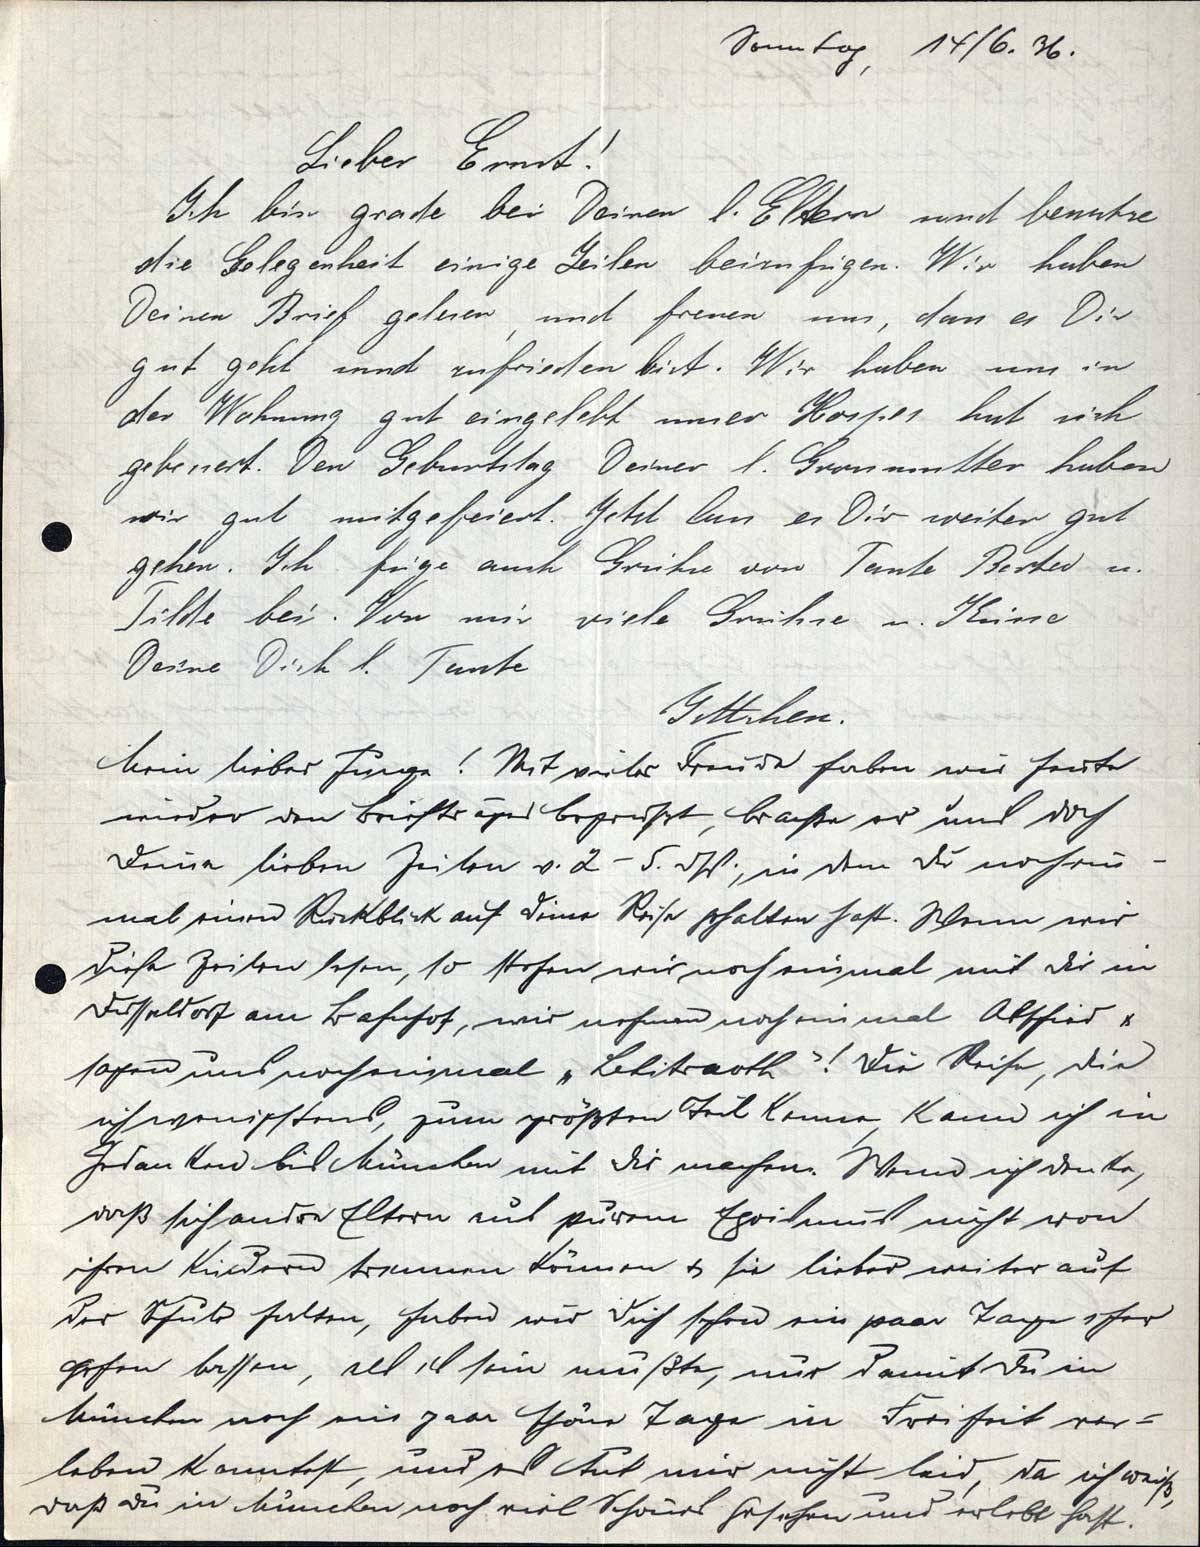 Sonntag, 14/6. 36.
Lieber Ernst!
Ich bin grade bei Deinen l. Eltern und benutze
die Gelegenheit einige Zeilen beizufügen. Wir haben
Deinen Brief gelesen, und freuen uns, dass es Dir
gut geht und zufrieden bist. Wir haben uns in
der Wohnung gut eingelebt unser Hospes hat sich
gebessert. Den Geburtstag Deiner l. Grossmutter haben
wir gut mitgefeiert. Jetzt lass es Dir weiter gut
gehen. Ich füge auch Grühse von Tante Berta u.
Tilde bei. Von mir viele Grühse u. Küsse
Deine Dich l. Tante
Jettchen.
Mein lieber Junge! Mit vieler Freude haben wir heute
wieder den Briefträger begrüßt, brachte er uns doch
Deine lieben Zeilen v. 2 – 5. ds., in dem Du noch ein-
mal einen Rückblick auf Deine Reise gehalten hast. Wenn wir
diese Zeilen lesen, so stehen wir noch einmal mit Dir in
Düsseldorf am Bahnhof, wir nehmen noch einmal Abschied &
sagen uns noch einmal „Lehitraoth"! Die Reise, die
ich wenigstens, zum größten Teil kenne, kann ich in
Gedanken bis München mit Dir machen. Wenn ich denke,
daß sich andre Eltern aus purem Egoismus nicht von
ihren Kindern trennen können & sie lieber weiter auf
der Schule halten, haben wir Dich schon ein paar Tage eher
gehen lassen, als es sein mußte, nur damit Du in
München noch ein paar schöne Tage in Freiheit ver=
leben konntest, und es tut mir nicht leid, da ich weiß,
daß Du in München noch viel Schönes gesehen und erlebt hast.